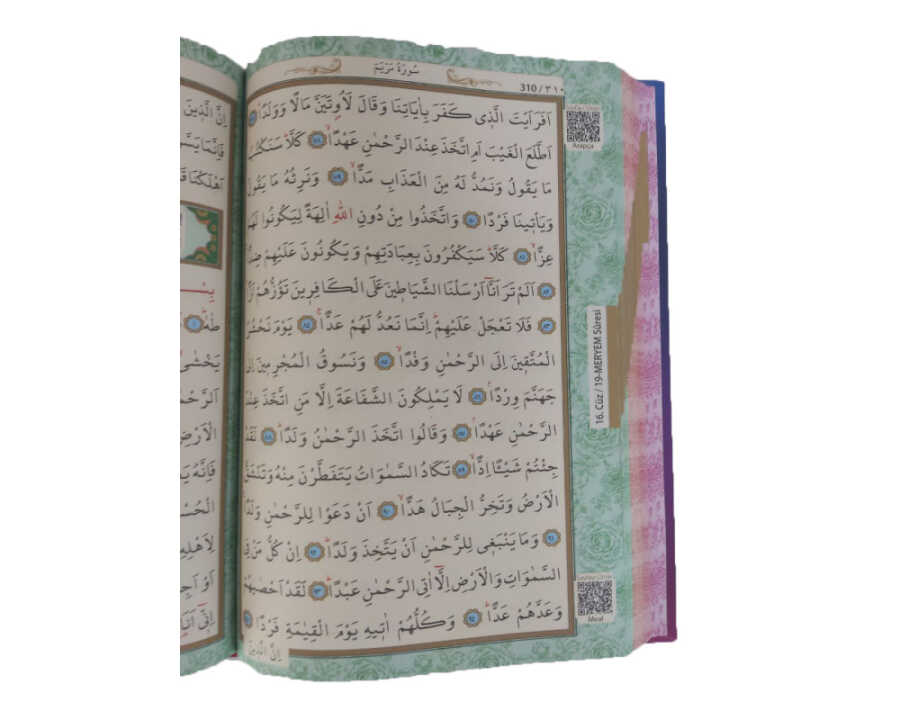 سُورَةُ مَرْيَمَ
310 / ٣١٠
اَفَرَاَيْتَ الَّذ۪ي كَفَرَ بِاٰيَاتِنَا وَقَالَ لَاُو۫تَيَنَّ مَالًا وَوَلَدًاۜ
اَطَّلَعَ الْغَيْبَ اَمِ اتَّخَذَ عِنْدَ الرَّحْمٰنِ عَهْدًاۙ ﴿٧٨﴾ كَلَّاۜ سَنَكْتُبُ
مَا يَقُولُ وَنَمُدُّ لَهُ مِنَ الْعَذَابِ مَدًّاۙ ﴿٧٩﴾ وَنَرِثُهُ مَا يَقُولُ
وَيَأْت۪ينَا فَرْدًا ﴿٨٠﴾ وَاتَّخَذُوا مِنْ دُونِ اللّٰهِ اٰلِهَةً لِيَكُونُوا لَهُمْ
عِزًّاۙ ﴿٨١﴾ كَلَّاۜ سَيَكْفُرُونَ بِعِبَادَتِهِمْ وَيَكُونُونَ عَلَيْهِمْ ضِدًّا
﴿٨٢﴾ اَلَمْ تَرَ اَنَّٓا اَرْسَلْنَا الشَّيَاط۪ينَ عَلَى الْكَافِر۪ينَ تَؤُزُّهُمْ اَزًّا
﴿٨٣﴾ فَلَا تَعْجَلْ عَلَيْهِمْۜ اِنَّمَا نَعُدُّ لَهُمْ عَدًّاۚ ﴿٨٤﴾ يَوْمَ نَحْشُرُ
الْمُتَّق۪ينَ اِلَى الرَّحْمٰنِ وَفْدًاۙ ﴿٨٥﴾ وَنَسُوقُ الْمُجْرِم۪ينَ اِلٰى
جَهَنَّمَ وِرْدًاۢ ﴿٨٦﴾ لَا يَمْلِكُونَ الشَّفَاعَةَ اِلَّا مَنِ اتَّخَذَ عِنْدَ
الرَّحْمٰنِ عَهْدًاۢ ﴿٨٧﴾ وَقَالُوا اتَّخَذَ الرَّحْمٰنُ وَلَدًاۜ ﴿٨٨﴾ لَقَدْ
جِئْتُمْ شَيْـًٔا اِدًّاۙ ﴿٨٩﴾ تَكَادُ السَّمٰوَاتُ يَتَفَطَّرْنَ مِنْهُ وَتَنْشَقُّ
الْاَرْضُ وَتَخِرُّ الْجِبَالُ هَدًّاۙ ﴿٩٠﴾ اَنْ دَعَوْا لِلرَّحْمٰنِ وَلَدًاۚ
﴿٩١﴾ وَمَا يَنْبَغ۪ي لِلرَّحْمٰنِ اَنْ يَتَّخِذَ وَلَدًاۜ ﴿٩٢﴾ اِنْ كُلُّ مَنْ فِي
السَّمٰوَاتِ وَالْاَرْضِ اِلَّٓا اٰتِي الرَّحْمٰنِ عَبْدًاۜ ﴿٩٣﴾ لَقَدْ اَحْصٰيهُمْ
وَعَدَّهُمْ عَدًّاۜ ﴿٩٤﴾ وَكُلُّهُمْ اٰت۪يهِ يَوْمَ الْقِيٰمَةِ فَرْدًا
اِنَّ الَّذ۪ينَ
Arapça
16. Cüz / 19-MERYEM Sûresi
Meal
اِنَّ الَّذ۪ينَ
اَهْلَكْنَا
طٰهٰۜ
يَخْشٰى
الْاَرْضِ
فَاِنَّهُ
لِاَهْلِهِ